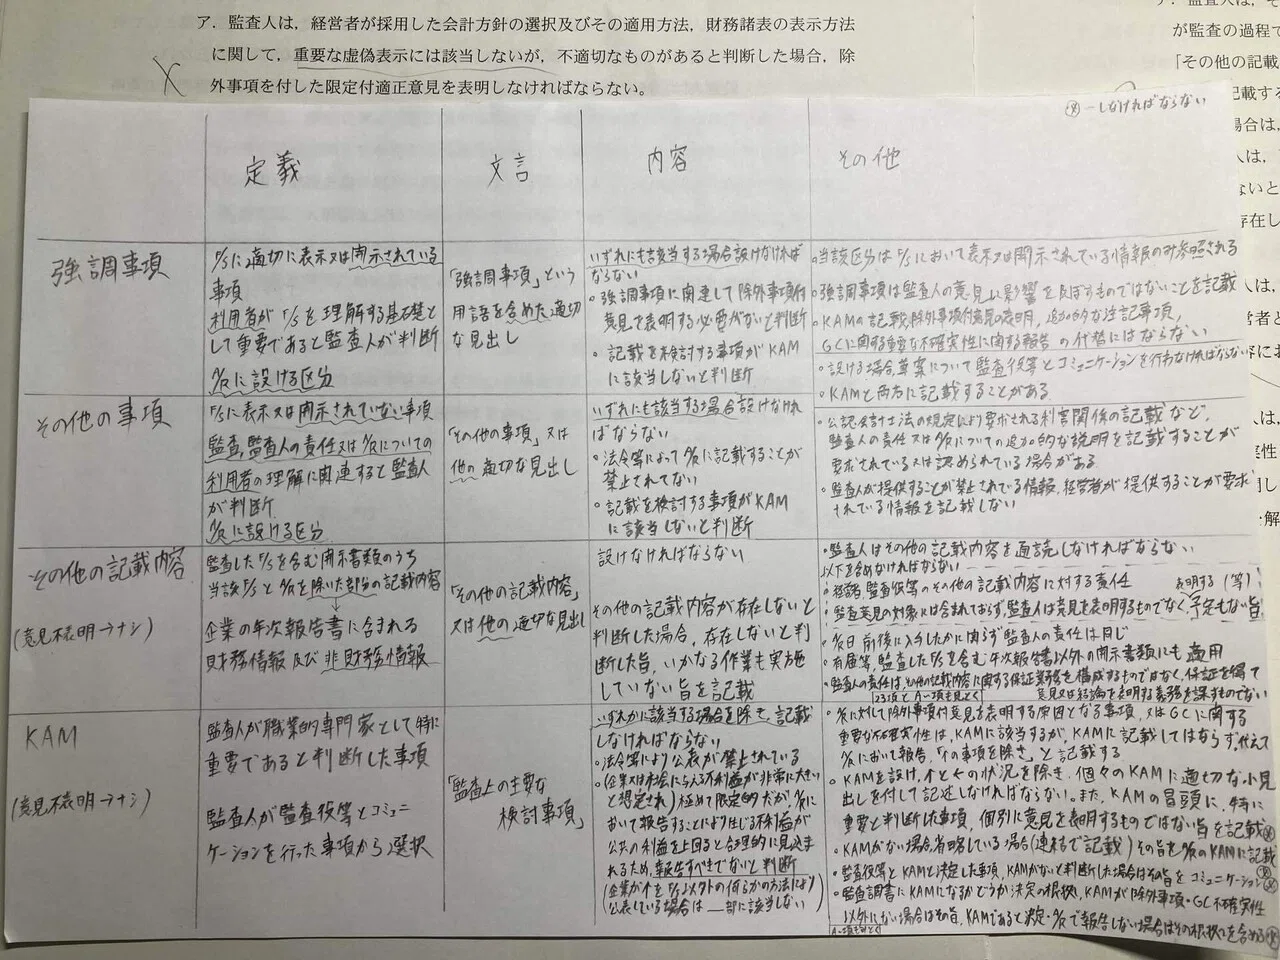 ア．監査人は，経営者が採用した会計方針の選択及びその適用方法，財務諸表の表示方法
に関して，重要な虚偽表示には該当しないが，不適切なものがあると判断した場合，除
外事項を付した限定付適正意見を表明しなければならない。
が監査の過程で
「その他の記載
記載する
場合は，
※ーしなければならない
定義
文言
内容
その他
強調事項
F/Sに適切に表示又は開示されている
事項
利用者がF/Sを理解する基礎と
して重要であると監査人が判断
A/Rに設ける区分
「強調事項」という
用語を含めた適切
な見出し
いずれにも該当する場合設けなければ
ならない
・強調事項に関連して除外事項付
意見を表明する必要がないと判断
・記載を検討する事項がKAM
に該当しないと判断
・当該区分はF/Sにおいて表示又は開示されている情報のみ参照される
・強調事項は監査人の意見に影響を及ぼすものではないことを記載
・KAMの記載、除外事項付意見の表明，追加的な注記事項，
GCに関する重要な不確実性に関する報告の代替にはならない
・設ける場合、草案について監査役等とコミュニケーションを行わなければならない
・KAMと両方に記載することがある
その他の事項
F/Sに表示又は開示されていない事項
監査、監査人の責任又はA/Rについての
利用者の理解に関連すると監査人
が判断
A/Rに設ける区分
「その他の事項」又は
他の適切な見出し
いずれにも該当する場合設けなけれ
ばならない
・法令等によってA/Rに記載することが
禁止されてない
・記載を検討する事項がKAM
に該当しないと判断
・公認会計士法の規定により要求される利害関係の記載など，
監査人の責任又はA/Rについての追加的な説明を記載することが
要求されている又は認められている場合がある
・監査人が提供することが禁止されている情報、経営者が提供することが要求
されている情報を記載しない
その他の記載内容
(意見不表明→ナシ)
監査したF/Sを含む開示書類のうち
当該F/SとA/Rを除いた部分の記載内容
企業の年次報告書に含まれる
財務情報及び非財務情報
「その他の記載内容」
又は他の適切な見出し
設けなければならない
その他の記載内容が存在しないと
判断した場合，存在しないと判
断した旨，いかなる作業も実施
していない旨を記載
・監査人はその他の記載内容を通読しなければならない
以下を含めなければならない
・経営者、監査役等のその他の記載内容に対する責任
表明する(等)
・監査意見の対象には含まれておらず、監査人は意見を表明するものでなく、予定もない旨
・A/R日前後に入手したかに関らず監査人の責任は同じ
・有届等、監査したF/Sを含む年次報告書以外の開示書類にも適用
・監査人の責任は、その他の記載内容に関する保証業務を構成するものではなく、保証を得て
意見又は結論を表明する義務を課すものでない
KAM
(意見不表明→ナシ)
監査人が職業的専門家として特に
重要であると判断した事項
監査人が監査役等とコミュニ
ケーションを行った事項から選択
「監査上の主要な
検討事項」
いずれかに該当する場合を除き、記載
しなければならない
・法令等により公表が禁止されている
・(企業又は社会に与える不利益が非常に大きい
と想定され)極めて限定的だが、A/Rに
おいて報告することにより生じる不利益が
公共の利益を上回ると合理的に見込ま
れるため、報告すべきでないと判断
(企業が個をF/S以外の何らかの方法により
公表している場合は__部に該当しない)
・A/Rに対して除外事項付意見を表明する原因となる事項，又はGCに関する
重要な不確実性は，KAMに該当するが，KAMに記載してはならず，代えて
A/Rにおいて報告、「の事項を除き」と記載する
を除き，個々のKAMに適切な小見
出しを付して記述しなければならない。また，KAMの冒頭に，特に
重要と判断した事項，個別に意見を表明するものではない旨を記載※
・KAMがない場合、省略している場合(連結で記載)その旨をA/RのKAMに記載
・監査役等とKAMと決定した事項、KAMがないと判断した場合はその旨をコミュニケーション※
・監査調書にKAMになるかどうか決定の根拠、KAMが除外事項・GC不確実性
以外にない場合はその旨，KAMであると決定・A/Rで報告しない場合はその根拠を含める※